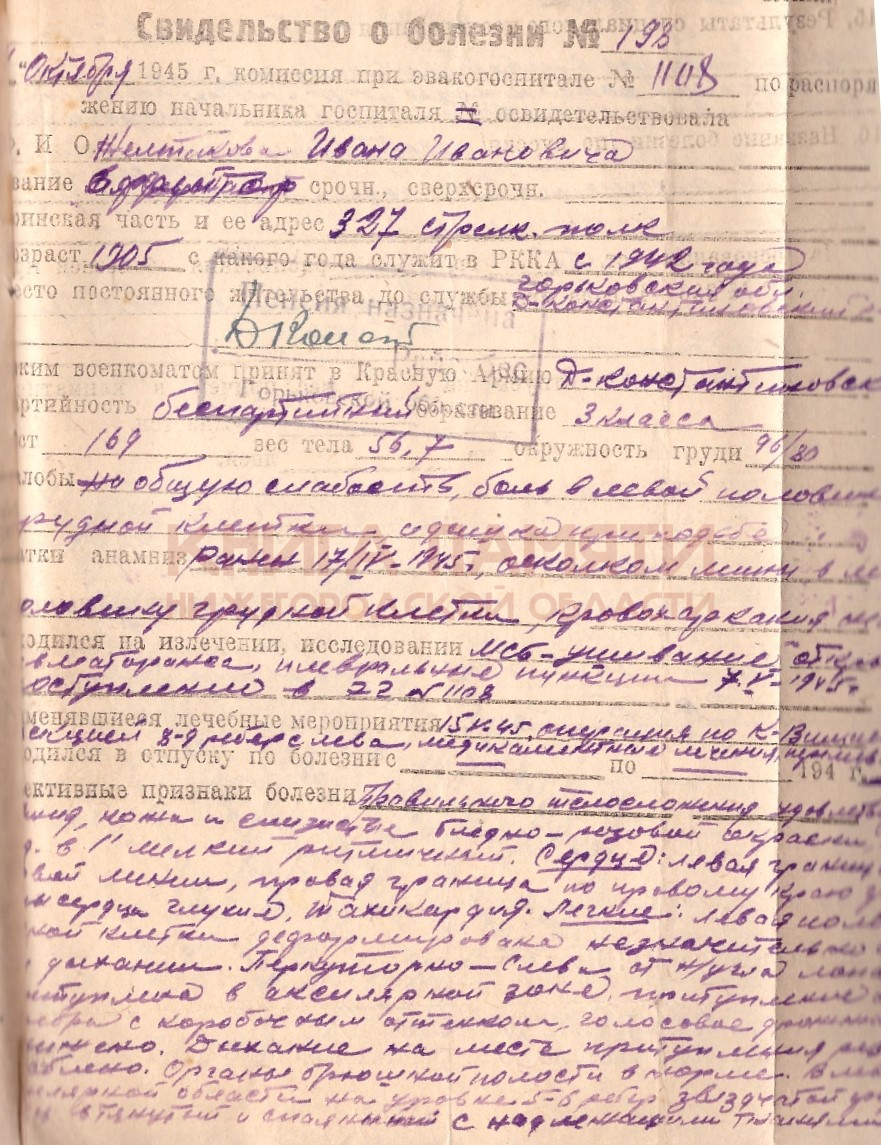 Свидетельство о болезни № 193
"Октября 1945 г, комиссия при эвакогоспитале № 1108 по распоря
жению начальника госпиталя № освидетельствовала
И О. Желтикова Ивана Ивановича
вание срочн., сверхсрочн.
инская часть и ее адрес 327 стрелк. полк
зраст 1905 с какого года служит в РККА с 1942 года
есто постоянного жительства до службы Горьковская обл.
Д-Константиновский
Пенсия назначена
Горьковской области
ким военкоматом принят в Красную Армию Д-константиновск
артийность беспартийный образование 3 класса
ст 169 вес тела 56,7 окружность груди 96/80
лобы на общую слабость, боль в левой половине
рудной клетки, одышка при ходьбе
КНИГА ПАМЯТИ
атки анамниз ранен 17/IV-1945г. осколком мины в ле
НИЖЕГОРОДСКОЙ ОБЛАСТИ
оловину грудной клетки, кровохаркания не
ходился на излечении, исследовании МСБ-ушивание откр
вматоракса, плевральные пункции 7.V-1945г.
оступлении в 1108
именявшиеся лечебные мероприятия 15.V.45. операция по
екцией 8-9 ребер слева, медикаментное лечение,
одился в отпуску по болезни с — по — 194 г.
ективные признаки болезни Правильного телосложения, удовлетв
кожа и слизистые бледно-розовой окраски,
в 1" мелкий ритмичный. Сердце: левая границ
вой линии, правая граница по правому краю
сердца глухие, тахикардия. Легкие: левая поло
ной клетки деформирована незначительно
дыхании. Перкуторно-слева от угла лопа
ритупление в аксилярной зоне, притупление
ребра с коробочным оттенком, голосовое дрожание
Дыхание на месте притупления
аблено. Органы брюшной полости в норме. В
илярной области на уровне 5-6 ребер звездчатой
втянутый и спаянный с надлежащими тканями